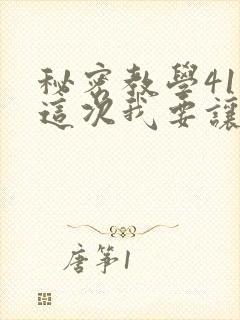 秘密教學41
這次我要讓
唐筝1